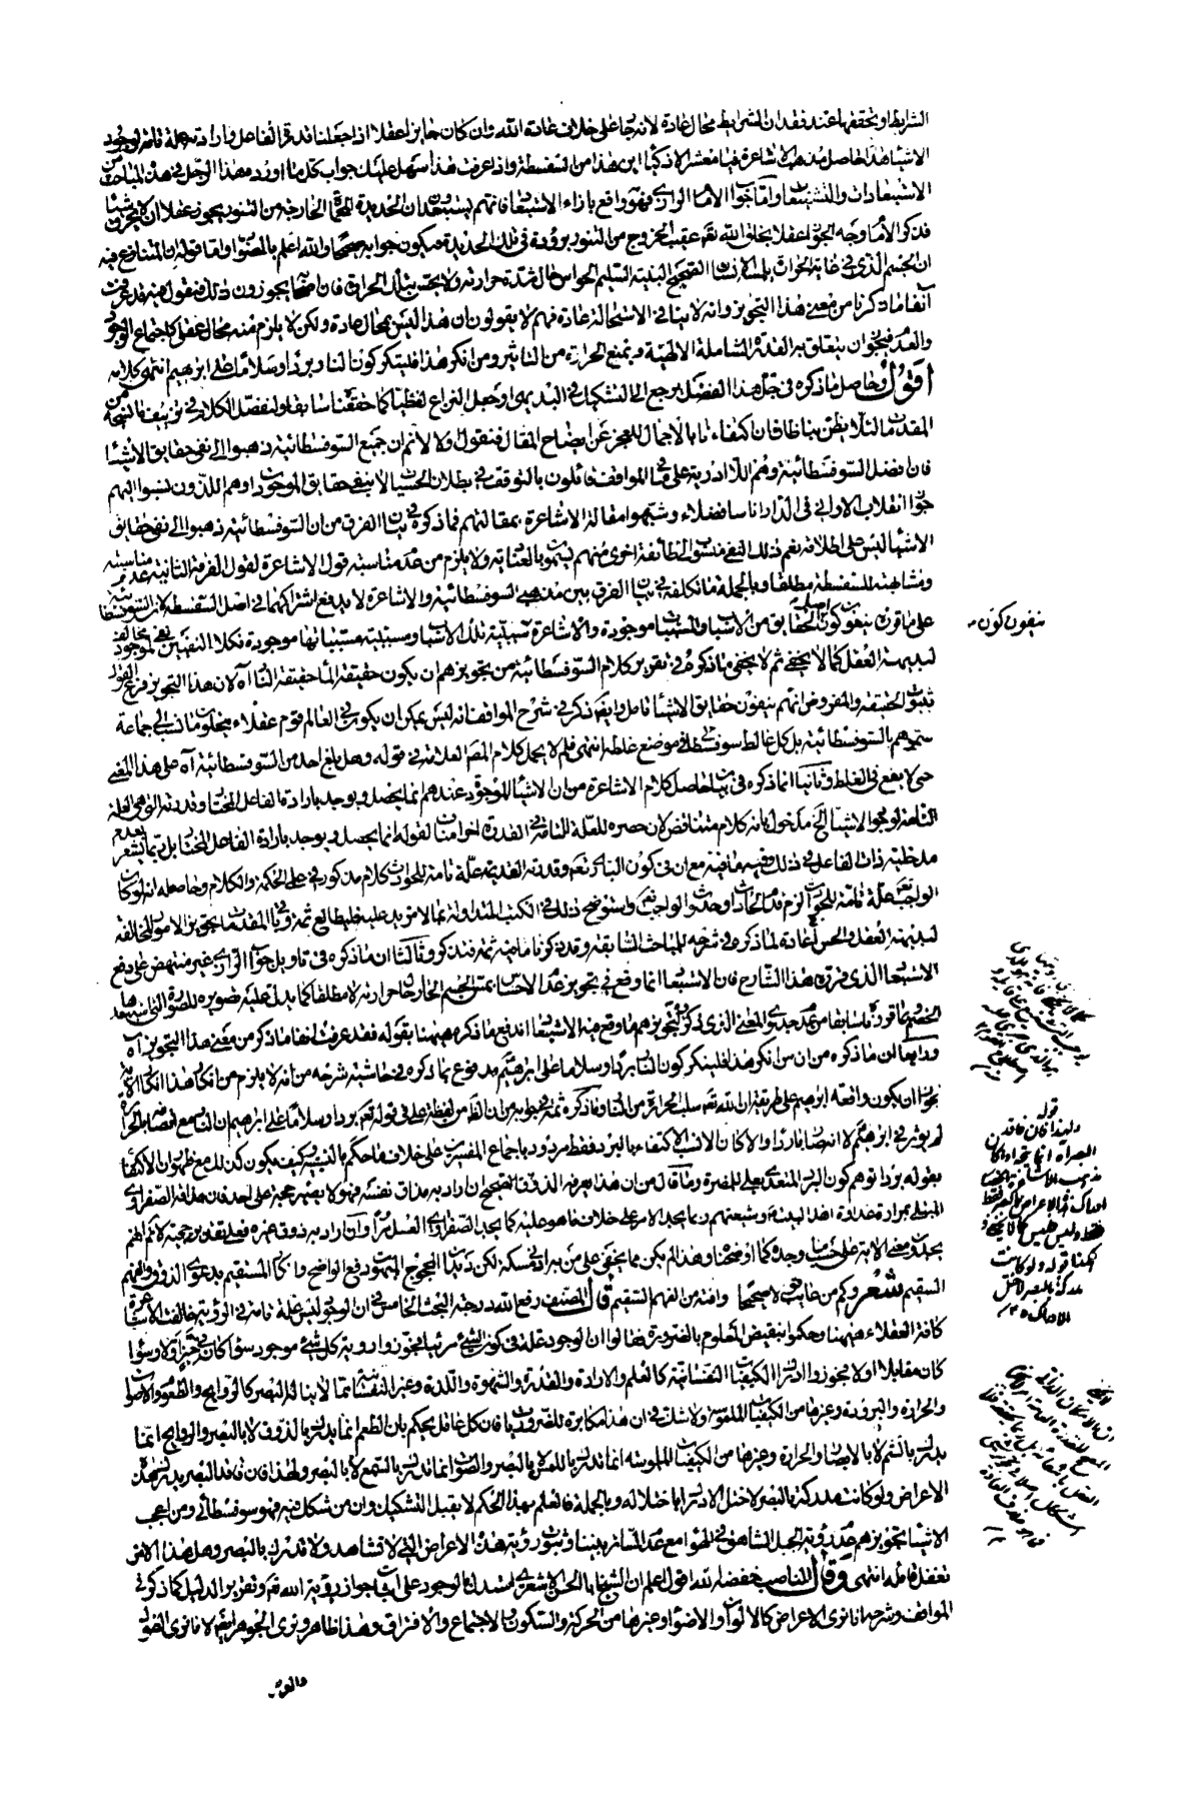 الشرايط او تحققها عند فقدان الشرايط محال عادة لانه جار على خلاف عادة الله وان كان جايزا عقلا اذا جعلنا قدرة الفاعل وارادته علة تامة لوجود
الاشياء هذا حاصل مذهب الاشاعرة فيا معشر الاذكياء اين هذا من السفسطة واذا عرفت هذا سهل عليك جواب كل ما اورده هذا الرجل في هذه المباحث من
الاستبعادات والتشنيعات واما جواب الامام الرازي فهو واقع بازاء الاستبعاد فانهم يستبعدون ان الحديدة المحماة الخارجة من التنور يجوز عقلا ان لا تحرق شيئا
فذكر الامام وجه الجواز عقلا بخلق الله تعالى عقيب الخروج من التنور برودة في تلك الحديدة فيكون جوابه صحيحا والله اعلم بالصواب واما قوله ان المتنازع فيه
ان الجسم الذي في غاية الحرارة يلمسه الانسان الصحيح البنية السليم الحواس حال شدة حرارته ولا يحس بتلك الحرارة فان اصحابه يجوزون ذلك فنقول فيه قد عرفت
آنفا ما ذكرنا من معنى هذا التجويز وانه لا ينافي الاستحالة عادة فهم لا يقولون ان هذا ليس بمحال عادة ولكن لا يلزم منه محال عقلي كاجتماع الوجود
والعدم فيجوز ان يتعلق به القدرة الشاملة الالهية ويمنع الحرارة من التاثير ومن انكر هذا فلينكر كون النار بردا وسلاما على ابرهيم انتهى كلامه
اقول وحاصل ما ذكره في جل هذا الفصل يرجع الى التشكيك في البديهي او جعل النزاع لفظيا كما حققناه سابقا ولنفصل الكلام في تزييف ما نتجه من
المقدمات لئلا يظن بنا ظان اكتفاءنا بالاجمال للعجز عن ايضاح المقال فنقول اولا لا نم ان جميع السوفسطائية ذهبوا الى نفي حقايق الاشياء
فان افضل السوفسطائية وهم اللاادرية على ما في المواقف قائلون بالتوقف في بطلان الحسيات لا بنفي حقايق الموجودات وهم الذين نسبوا اليهم
جواز انقلاب الاواني في الدار اناسا فضلاء وشبهوا مقالة الاشاعرة بمقالتهم فما ذكره في بيان الفرق من ان السوفسطائية ذهبوا الى نفي حقايق
الاشياء ليس على اطلاقه نعم ذلك النفي منسوب الى طائفة اخرى منهم يسمون بالعنادية ولا يلزم من عدم مناسبة قول الاشاعرة لقول الفرقة الثانية عدم مناسبته
ومشابهته للسفسطة مطلقا وبالجملة ما تكلفه في بيان الفرق بين مذهب السوفسطائية والاشاعرة لا يدفع اشتراكهما في اصل السفسطة لان السوفسطائية
على ما قرره ينفون كون الحقايق من الاسباب والمسببات موجودة والاشاعرة سببية تلك الاسباب ومسببية مسبباتها موجودة فكلا النفيين مخالف
لبديهة العقل كما لا يخفى ثم لا يخفى ما ذكره في تقرير كلام السوفسطائية من تجويزهم ان يكون حقيقة الماء حقيقة النار آه لان هذا التجويز فرع القول
بثبوت الحقيقة والمفروض انهم ينفون حقايق الاشياء تامل وايضا ذكر في شرح المواقف انه ليس يمكن ان يكون في العالم قوم عقلاء ينتحلون هذا المذهب جماعة
سموهم بالسوفسطائية بل كل غالط سوفسطائي في موضع غلطه انتهى فلم لا يحمل كلام المصنف العلامة في قوله وهل بلغ احد من السوفسطائية آه على هذا المعنى
حتى لا يقع في الغلط وثانيا ان ما ذكره في بيان حاصل كلام الاشاعرة من ان الاشياء الموجودة عندهم انما يحصل ويوجد بارادة الفاعل المختار وقدرته التي هي العلة
التامة لوجود الاشياء الخ مدخول بانه كلام متناقض لان حصره للعلة التامة في القدرة اخرا مناف لقوله انما يحصل ويوجد بارادة الفاعل المختار بل ربما يشعر بعدم
مدخلية ذات الفاعل في ذلك وفيه ما فيه مع ان في كون الباري تعالى وقدرته القديمة علة تامة للحوادث كلام مذكور في علمي الحكمة والكلام وحاصله انه لو كان
الواجب تعالى علة تامة للحوادث لزم قدم الحادث او حدوث الواجب تعالى ولتوضيح ذلك في الكتب المتداولة بما لا مزيد عليه فليطالع ثمة وفي المقدمات تجويز الامور المخالفة
لبديهة العقل والحس عادة لما ذكره في شرحه للمباحث السابقة وقد ذكرنا ما فيه ثمة فتذكر وثالثا ان ما ذكره في تاويل جواب الرازي غير منتهض على دفع
الاستبعاد الذي قرره هذا الشارح فان الاستبعاد انما وقع في تجويز عدم الاحساس بمس الجسم الحار حال حرارته لا مطلقا كما يدل عليه تصويره للصورة التي استبعدها
الخصم بما قررناه سابقا من عدم جدوى المعنى الذي ذكره لتجويزهم ما وقع منه الاستبعاد اندفع ما ذكره ههنا بقوله فقد عرفت آنفا ما ذكر من معنى هذا التجويز آه
ورابعا ان ما ذكره من ان من انكر هذا فلينكر كون النار بردا وسلاما على ابرهيم مدفوع بما ذكره في حاشية شرحه من انه لا يلزم من انكار هذا انكار الاية
لجواز ان يكون واقعة ابرهيم على طريقة ان الله تعالى سلب الحرارة من النار وما ذكره ثمة في جوابه من ان الظاهر من لفظة على في قوله تعالى بردا وسلاما على ابرهيم ان النار مع اقتضاء الحرارة
لم يؤثر في ابرهيم لا انها صارت باردة والا كان الانسب الاكتفاء بالبرد فقط مردود باجماع المفسرين على خلاف ما حكم بالنسبة وكيف يكون كذلك مع ظهور ان الاكتفاء
بقوله بردا توهم كون البرد المتعدي بعلى للمضرة وما قال من ان هذا يعرفه الذوق الصحيح ان اراد به مذاق نفسه فهو لا يصير حجة على احد فان مذاقه الصفراوي
المبتلى بمرارة عداوة اهل البيت وشيعتهم ربما يجد الامر على خلاف ما هو عليه كما يجد الصفراوي العسل مرا وان اراد به ذوق غيره فعلى تقدير حجيته لا نم انهم
يجدون معنى الاية على حسب ما وجده كما اوضحناه وهذا لم يكن مما يخفى على من به ادنى مسكة لكن ديدن المحجوج المبهوت دفع الواضح وانكار المستقيم بدعوى الذوق والفهم
السقيم شعر وكم من عائب قولا صحيحا وافته من الفهم السقيم قال المصنف رفع الله درجته البحث الخامس في ان الوجود ليس علة تامة في الرؤية خالفت الاشاعرة
كافة العقلاء ههنا وحكموا بنقيض المعلوم بالضرورة فقالوا ان الوجود علة في كون الشيء مرئيا فجوزوا رؤية كل شيء موجود سواء كان في حيز اولا وسواء
كان مقابلا اولا فجوزوا ادراك الكيفيات النفسانية كالعلم والارادة والقدرة والشهوة واللذة وغير النفسانية مما لا يناله البصر كالروايح والطعوم والاصوات
والحرارة والبرودة وغيرها من الكيفيات الملموسة ولا شك في ان هذا مكابرة للضروريات فان كل عاقل يحكم بان الطعم انما يدرك بالذوق لا بالبصر والروايح انما
يدرك بالشم لا بالابصار والحرارة وغيرها من الكيفيات الملموسة انما تدرك باللمس لا بالبصر والصوت انما يدرك بالسمع لا بالبصر ولهذا فان فاقد البصر يدرك هذه
الاعراض ولو كانت مدركة بالبصر لاختل الادراك باختلاله وبالجملة فالعلم بهذا الحكم لا يقبل التشكيك وان من شكك فيه فهو سوفسطائي ومن اعجب
الاشياء تجويزهم عدم رؤية الجبل الشاهق في الهواء مع عدم الساتر بيننا وثبوت رؤية هذه الاعراض التي لا تشاهد ولا تدرك بالبصر وهل هذا الا من
تغفل قائله انتهى وقال الناصب خفضه الله اقول اعلم ان الشيخ ابا الحسن الاشعري استدل بالوجود على اثبات جواز رؤية الله تعالى وتقرير الدليل كما ذكر في
المواقف وشرحها انا نرى الاعراض كالالوان والاضواء وغيرها من الحركة والسكون والاجتماع والافتراق وهذا ظاهر ونرى الجوهر ايضا لانا نرى الطول
ينفون كون
قوله
ولهذا فان فاقد
البصر آه